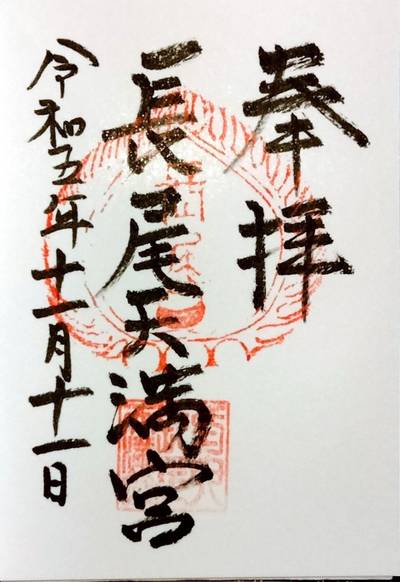 奉拝
長尾天満宮
令和五年十一月十一日